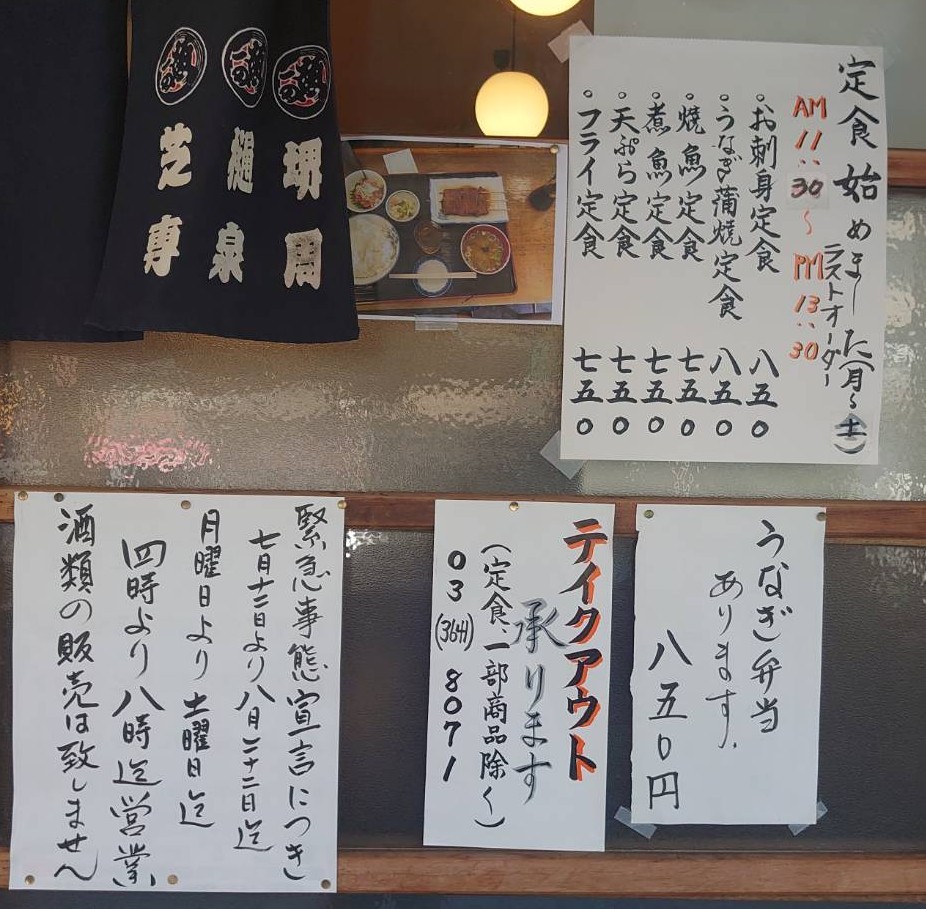 定食始めました(月~土)
ラストオーダー
AM 11:30~PM 13:30
・お刺身定食 八五0
・うなぎ蒲焼定食 八五0
・焼魚定食 七五0
・煮魚定食 七五0
・天ぷら定食 七五0
・フライ定食 七五0
堺周
樋泉
芝専
うなぎ弁当
あります.
八五0円
テイクアウト
承ります
(定食、一部商品除く)
03(3641)8071
緊急事態宣言につき
七月十二日より八月二十二日迄
月曜日より土曜日迄
四時より八時迄営業
酒類の販売は致しません